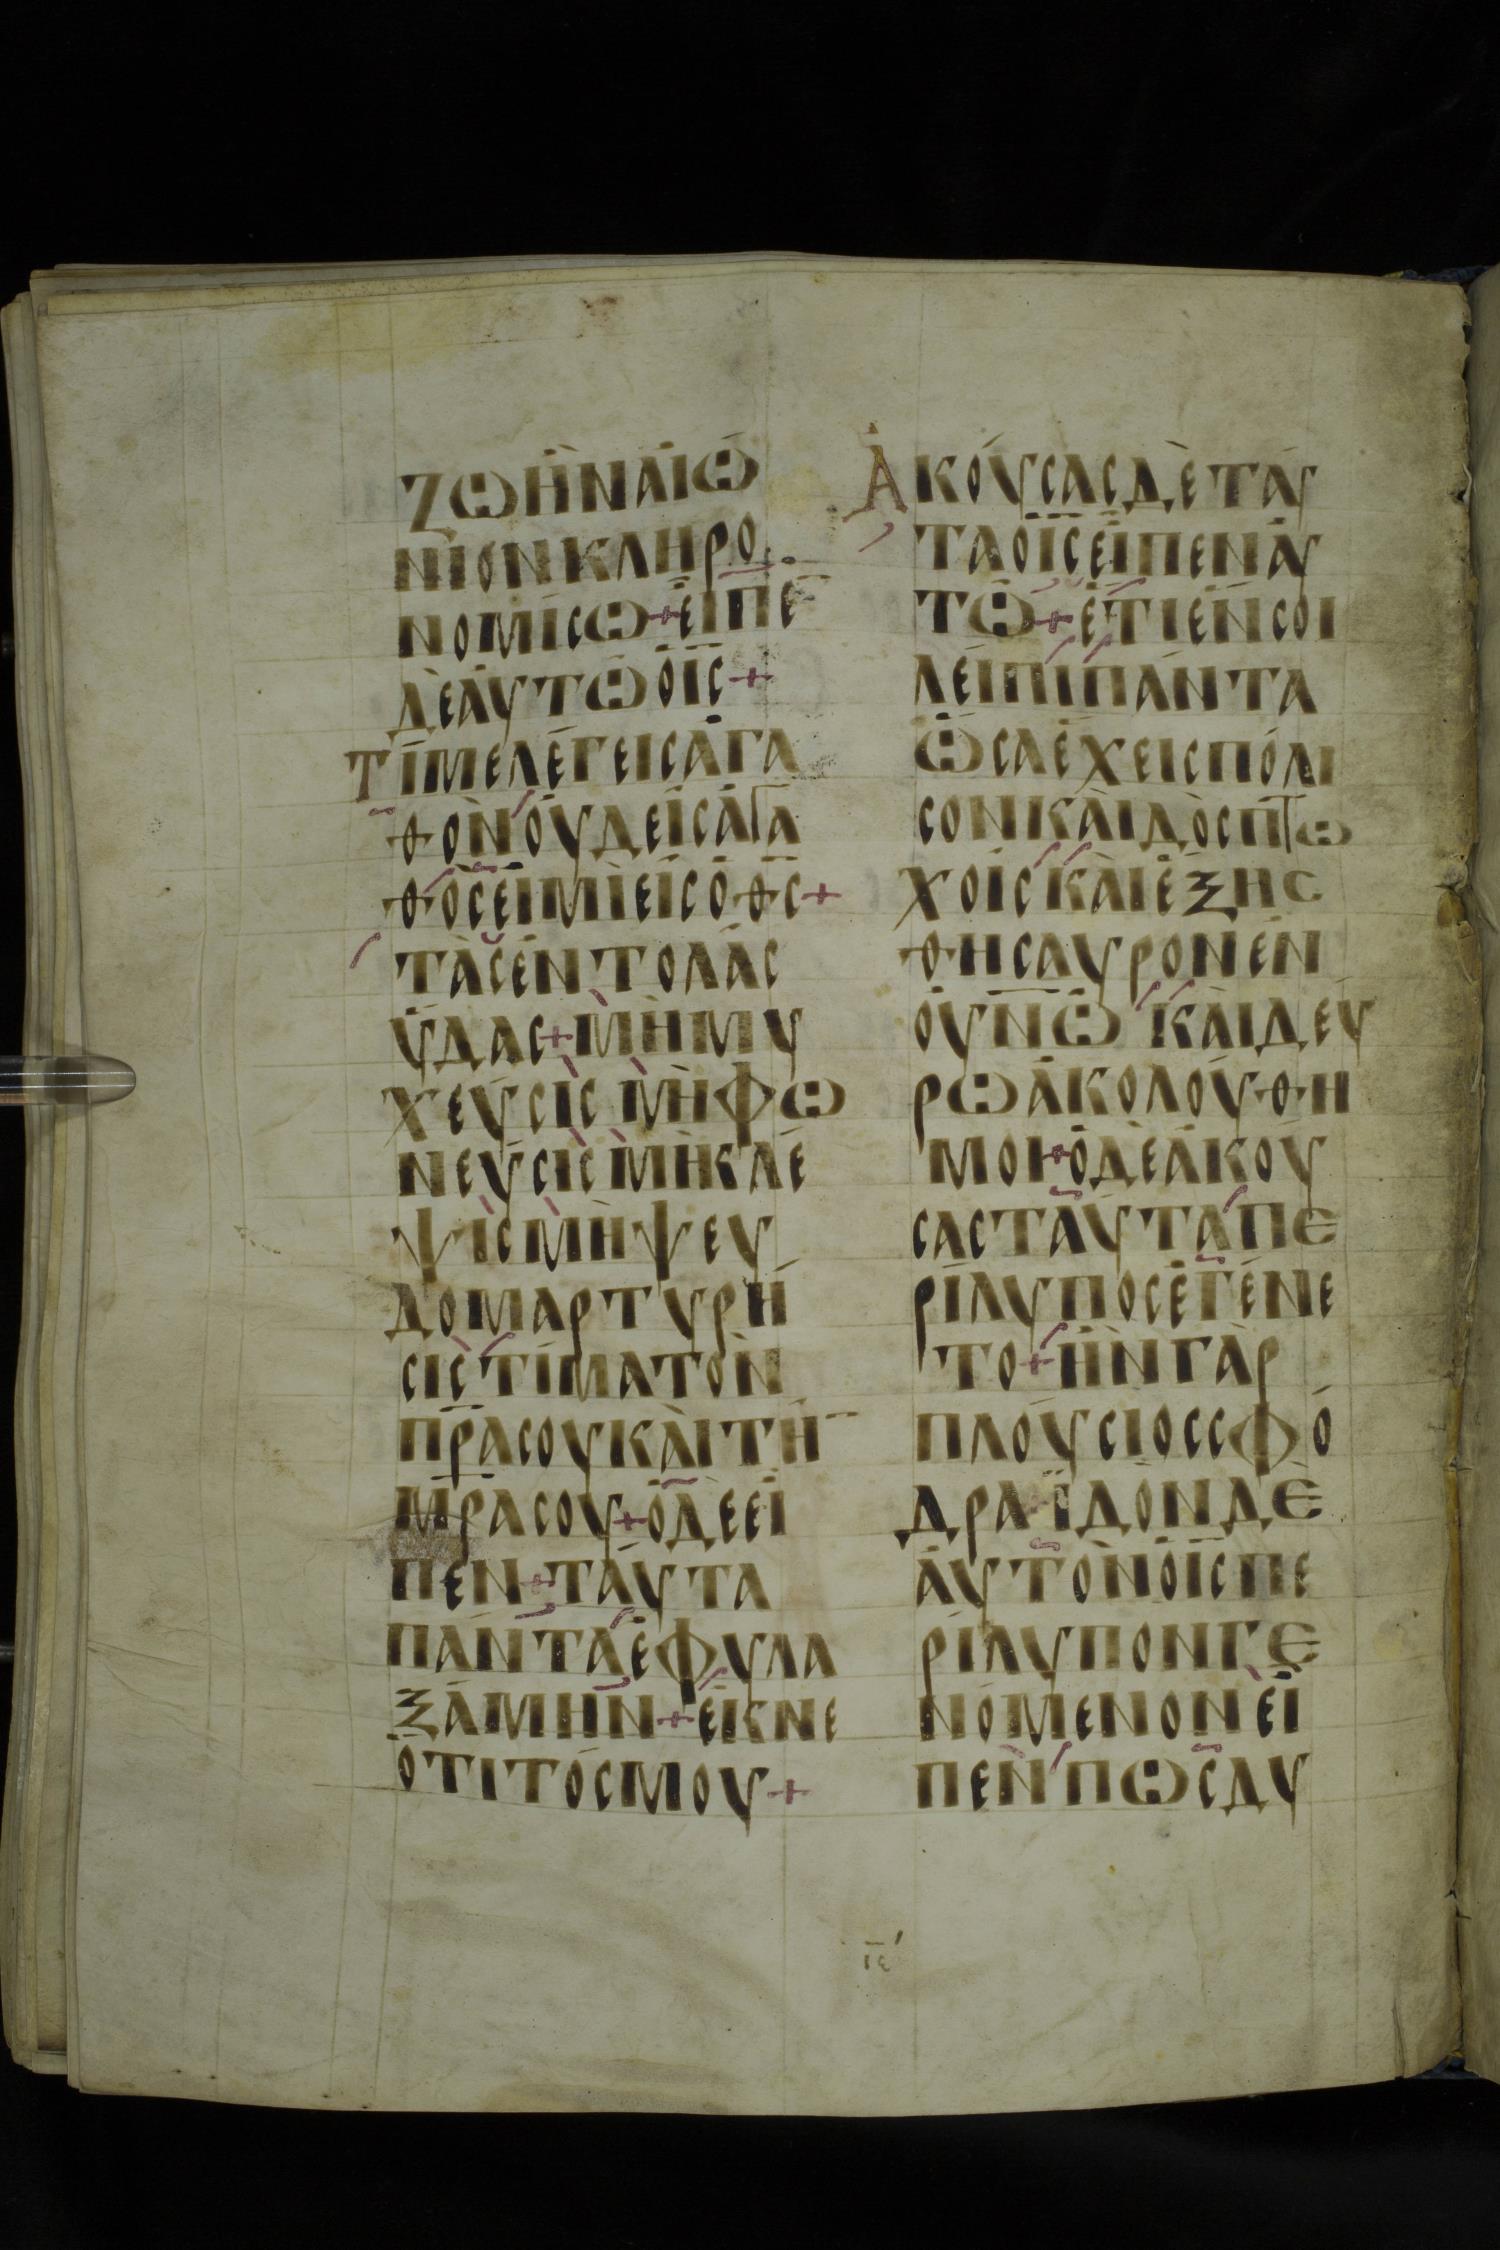 ΖΩΗΝΑΙΩ
ΝΙΟΝΚΛΗΡΟ
ΝΟΜΙСΩ+ΕΙΠΕ̅
ΔΕΑΥΤΩΟΙ̅С̅+
ΤΙΜΕΛΕΓΕΙСΑΓΑ
ΘΟΝΟΥΔΕΙСΑΓΑ
ΘΟСΕΙΜΙΕΙСΟΘ̅С̅+
ΤΑСΕΝΤΟΛΑС
ΥΔΑС+ΜΗΜΥ
ΧΕΥСΙСΜΗΦΩ
ΝΕΥСΙСΜΗΚΛΕ
ΨΙСΜΗΨΕΥ
ΔΟΜΑΡΤΥΡΗ
СΙСΤΙΜΑΤΟΝ
Π̅Ρ̅ΑСΟΥΚΑΙΤΗ̅
Μ̅Ρ̅ΑСΟΥ+ΟΔΕΕΙ
ΠΕΝ+ΤΑΥΤΑ
ΠΑΝΤΑΕΦΥΛΑ
ΞΑΜΗΝ+ΕΚΝΕ
ΟΤΙΤΟСΜΟΥ+
ΑΚΟΥСΑСΔΕΤΑΥ
ΤΑΟΙ̅С̅ΕΙΠΕΝΑΥ
ΤΩ+ΕΤΙΕΝСΟΙ
ΛΕΙΠΙΠΑΝΤΑ
ΩСΑΕΧΕΙСΠΟΛΙ
СΟΝΚΑΙΔΟСΠΤΩ
ΧΟΙСΚΑΙΕΞΗС
ΘΗСΑΥΡΟΝΕΝ
ΟΥ̅Ν̅Ω̅ΚΑΙΔΕΥ
ΡΩΑΚΟΛΟΥΘΗ
ΜΟΙ+ΟΔΕΑΚΟΥ
СΑСΤΑΥΤΑΠΕ
ΡΙΛΥΠΟСΕΓΕΝΕ
ΤΟ+ΗΝΓΑΡ
ΠΛΟΥСΙΟССΦΟ
ΔΡΑΪΔΟΝΔΕ
ΑΥΤΟΝΟΙ̅С̅ΠΕ
ΡΙΛΥΠΟΝΓΕ
ΝΟΜΕΝΟΝΕΙ
ΠΕΝΠΩСΔΥ
ιε̅ʹ